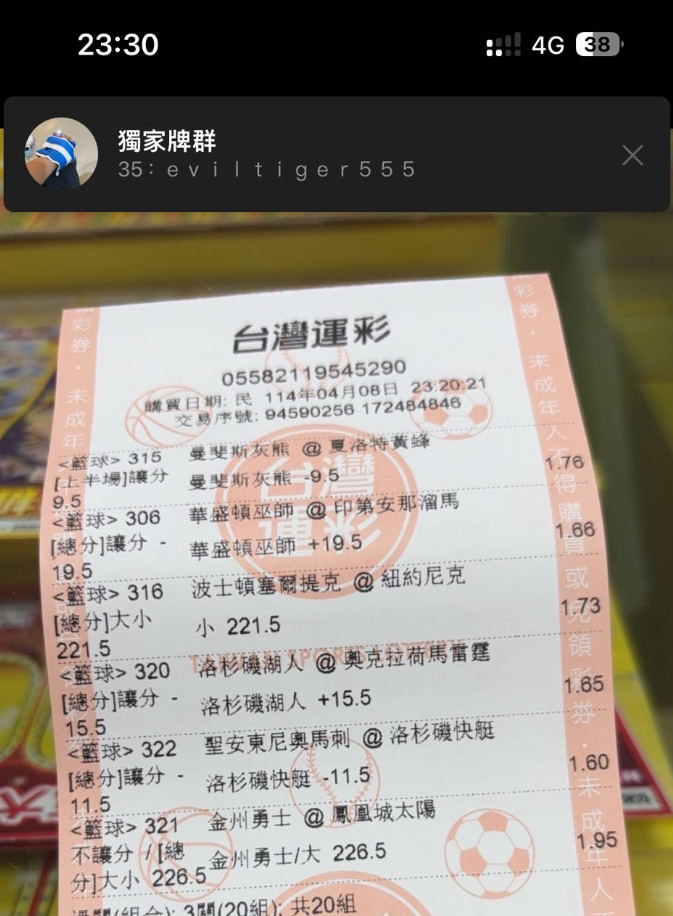 23:30
4G 38
獨家牌群
35: e v i l t i g e r 5 5 5
台灣運彩
05582119545290
購買日期: 民 114年04月08日 23:20:21
交易序號: 94590256 172484846
<籃球> 315 曼斐斯灰熊 @ 夏洛特黃蜂
[上半場]讓分 曼斐斯灰熊 -9.5 1.76
9.5
<籃球> 306 華盛頓巫師 @ 印第安那溜馬
[總分]讓分 - 華盛頓巫師 +19.5 1.66
19.5
<籃球> 316 波士頓塞爾提克 @ 紐約尼克
[總分]大小 小 221.5 1.73
221.5
<籃球> 320 洛杉磯湖人 @ 奧克拉荷馬雷霆
[總分]讓分 - 洛杉磯湖人 +15.5 1.65
15.5
<籃球> 322 聖安東尼奧馬刺 @ 洛杉磯快艇
[總分]讓分 - 洛杉磯快艇 -11.5 1.60
11.5
<籃球> 321 金州勇士 @ 鳳凰城太陽
不讓分 / [總 金州勇士/大 226.5 1.95
分]大小 226.5
過關(組合): 3關(20組); 共20組